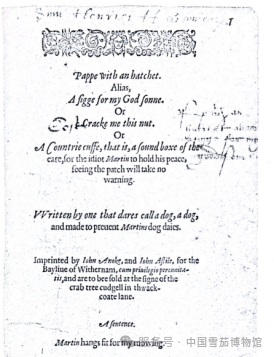 1
Pappe with an hatchet.
Alias,
A figge for my God sonne.
Or
Cracke me this nut.
Or
A Countrie cuffe, that is, a sound boxe of the
eare, for the idiot Martin to hold his peace,
seeing the patch will take no
warning.
VVritten by one that dares call a dog, a dog,
and made to preuent Martins dog daies.
Imprinted by Iohn Anoke, and Iohn Astile, for the
Bayliue of Withernam, cum priuilegio perennita-
tis, and are to be sold at the signe of the
crab tree cudgell in thwack-
coate lane.
A sentence.
Martin hangs fit for my mowing.
公众号 · 中国雪茄博物馆